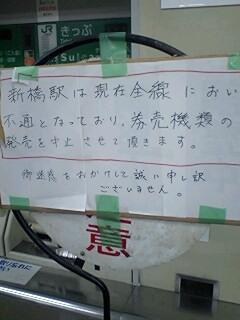 JR きっぷ
Sui
新橋駅は現在全線におい
不通となっており、券売機類の
発売を中止させて頂きます。
御迷惑をおかけして誠に申し訳
ございません。
意
取り忘れに